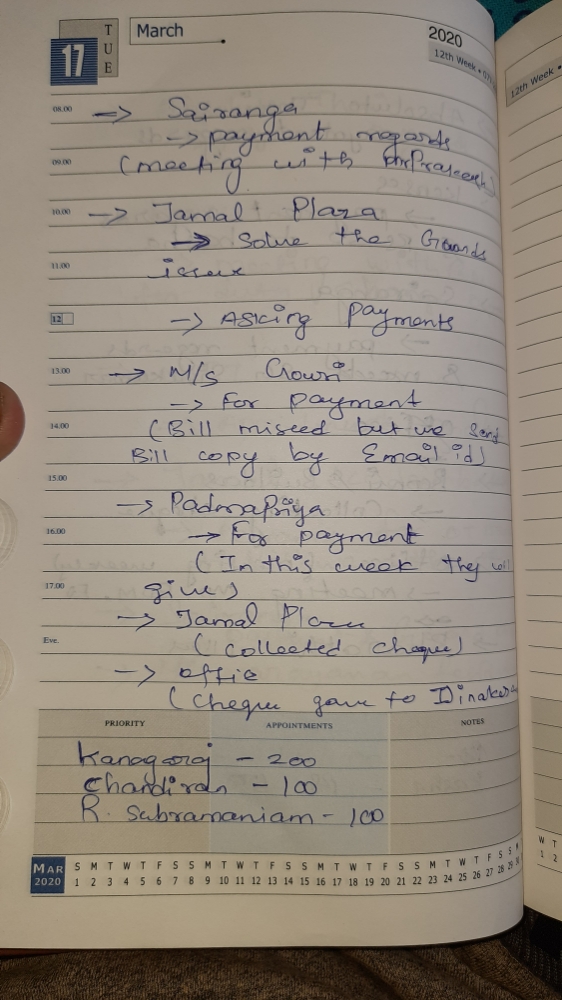 17
TUE
March
2020
12th Week •
12th Week •
08.00
→ Sairanga
→ payment regards
09.00
(meeting with
10.00
→ Jamal Plaza
→ Solve the Guards
11.00
issue
12
→ Asking Payments
13.00
→ M/s Gowri
→ For payment
14.00
(Bill missed but we send
Bill copy by Email id)
15.00
→ Padmapriya
16.00
→ For payment
(In this week they will
17.00
give)
→ Jamal Plaza
Eve.
(collected cheque)
→ offie
(cheque gave to Dinakera
PRIORITY APPOINTMENTS NOTES
Kanagaraj – 200
Chandiran – 100
R. Subramaniam – 100
MAR 2020
S M T W T F S S M T W T F S S M T W T F S S M T W T F S S
1 2 3 4 5 6 7 8 9 10 11 12 13 14 15 16 17 18 19 20 21 22 23 24 25 26 27 28 29
W T
1 2